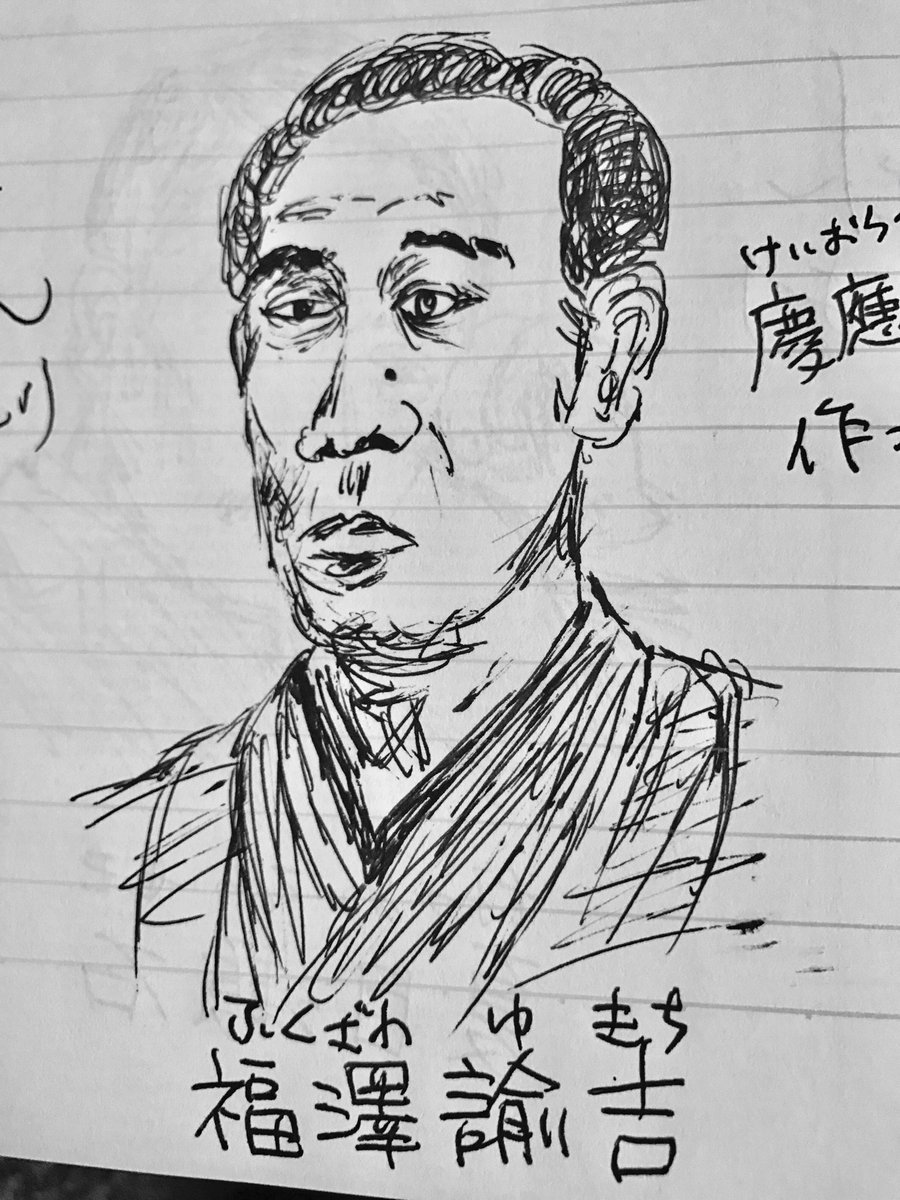 けいおう
慶應
作
ふくざわ ゆ きち
福澤諭吉